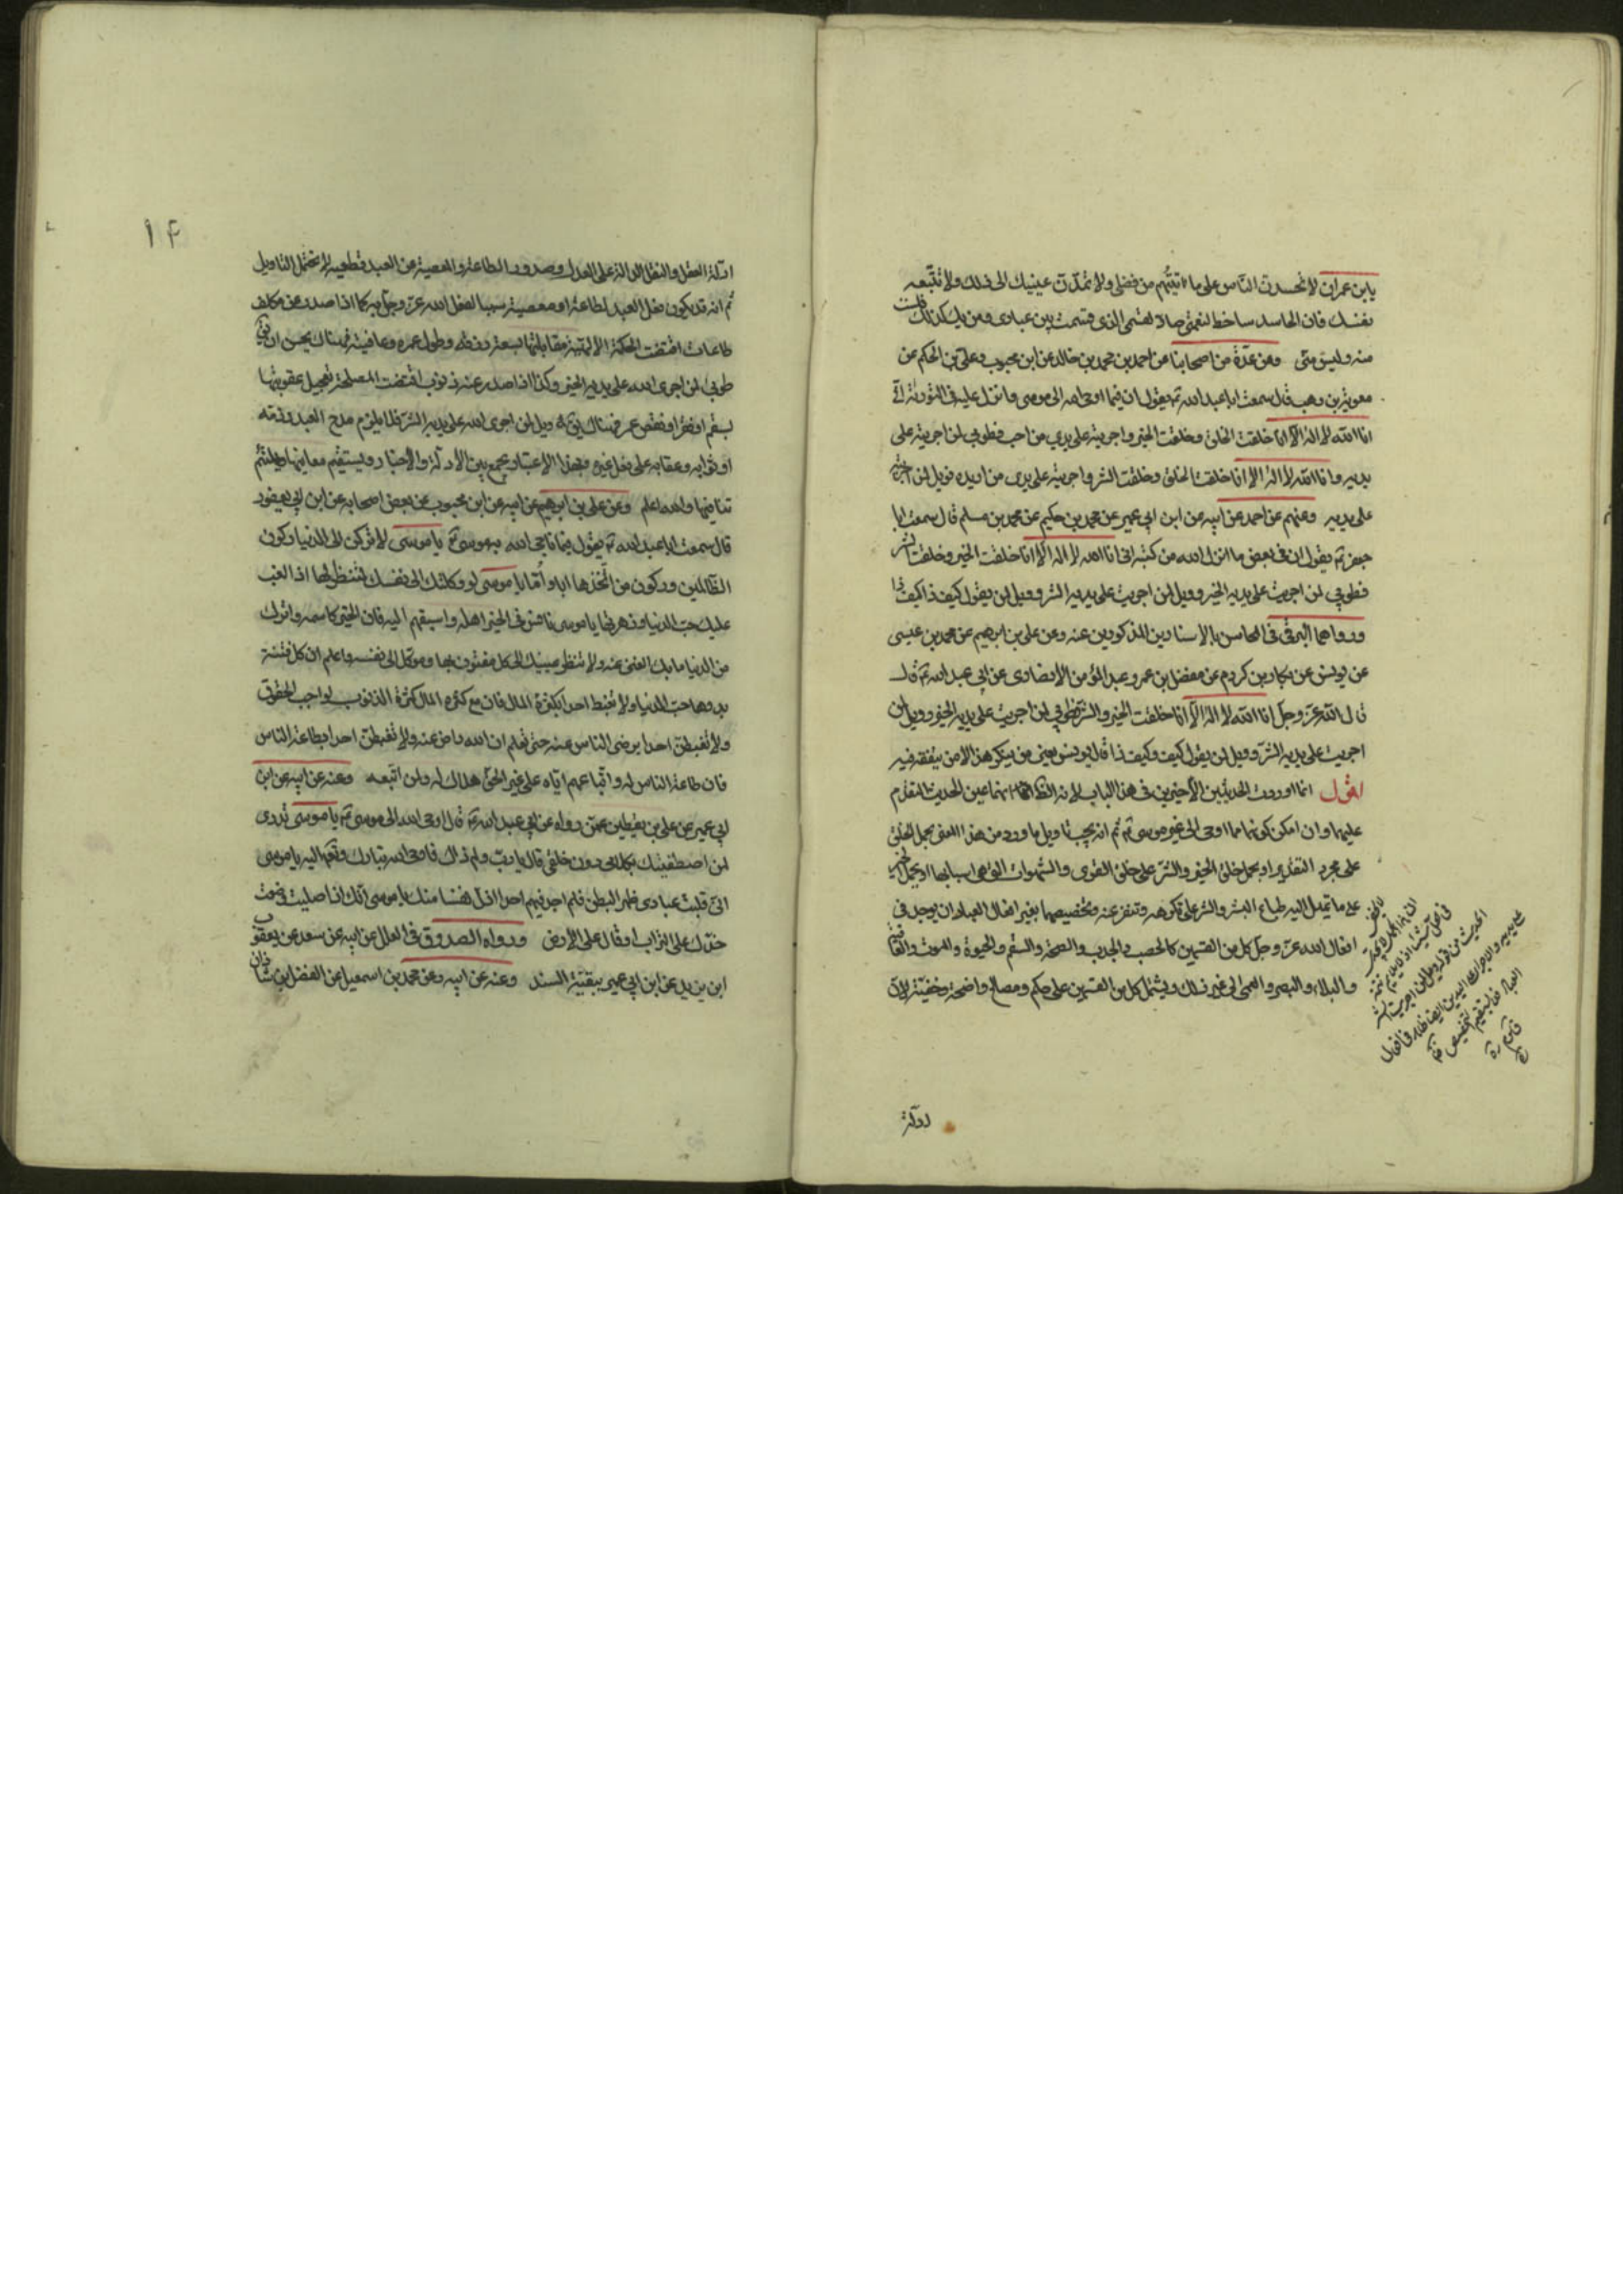 يابن عمران لا تحسدن الناس على ما اتيتهم من فضلى ولا تمدّن عينيك الى ذلك ولا تتبعه
نفسك فان الحاسد ساخط لنعمتى صاد لقسمى الذى قسمت بين عبادى ومن يك كذلك فلست
منه وليس منّى وعن عدّة من اصحابنا عن احمد بن محمد بن خالد عن ابن محبوب وعلى بن الحكم عن
معوية بن وهب قال سمعت ابا عبد الله ع يقول ان فيما اوحى الله الى موسى وانزل عليه فى التورية انّى
انا الله لا اله الا انا خلقت الخلق وخلقت الخير واجريته على يدى من احب فطوبى لمن اجريته على
يديه وانا الله لا اله الا انا خلقت الخلق وخلقت الشر واجريته على يدى من اريده فويل لمن اجريته
على يديه وعنهم عن احمد عن ابيه عن ابن ابى عمير عن محمد بن حكيم عن محمد بن مسلم قال سمعت ابا
جعفر ع يقول ان فى بعض ما انزل الله من كتبه انى انا الله لا اله الا انا خلقت الخير وخلقت الشر
فطوبى لمن اجريت على يديه الخير وويل لمن اجريت على يديه الشر وويل لمن يقول كيف ذا كيف ذا
ورواهما البرقى فى المحاسن بالاسنادين المذكورين عنه وعن على بن ابرهيم عن محمد بن عيسى
عن يونس عن بكار بن كردم عن مفضل بن عمر وعبد المؤمن الانصارى عن ابى عبد الله ع قال
قال الله عزّ وجلّ انا الله لا اله الا انا خلقت الخير والشر فطوبى لمن اجريت على يديه الخير وويل لمن
اجريت على يديه الشر وويل لمن يقول كيف وكيف ذا قال يونس يعنى من ينكر هذا الامر بتفقه فيه
اقول انما اوردت الحديثين الاخيرين فى هذا الباب لانه الظ انهما عين الحديث المتقدم
عليهما وان امكن كونهما مما اوحى الى غير موسى ع ثم انه يجب تاويل ما ورد من هذا المعنى بحمل الخلق
على مجرد التقدير او بحمل خلق الخير والشر على خلق القوى والشهوات التى هى اسبابها او بحمل الخير
على ما تميل اليه طباع البشر والشر على ما تكرهه وتنفر عنه وتخصيصهما بغير افعال العباد بان يوجد فى
افعال الله عزّ وجلّ كل من القسمين كالخصب والجدب والصحة والسقم والحيوة والموت والعافية
والبلاء والبصر والعمى الى غير ذلك ويشتمل كل من القسمين على حكم ومصالح واضحة وخفية لان
ادلة
١٤
ادلة العقل والنقل الدالة على العدل وصدور الطاعة والمعصية من العبد قطعية لا تحتمل التاويل
ثم انه قد يكون فعل العبد لطاعة او معصية سببا لفعل الله عزّ وجلّ به كما اذا صدر من مكلف
طاعات اقتضت الحكمة الالهية مقابلتها بسعة رزقه وطول عمره وعافيته فهناك يحسن ان يق
طوبى لمن اجرى الله على يديه الخير وكذا اذا صدر عنه ذنوب اقتضت المصلحة تعجيل عقوبتها
بسقم او فقر او نقص عمر فهناك يق ويل لمن اجرى الله على يديه الشر فلا يلزم مدح العبد وذمه
او ثوابه وعقابه على فعل غيره وبهذا الاعتبار يجمع بين الادلة والاخبار ويستقيم معاينها ويلتئم
تنافيها والله اعلم وعن على بن ابرهيم عن ابيه عن ابن محبوب عن بعض اصحابه عن ابن ابى يعفور
قال سمعت ابا عبد الله ع يقول فيما ناجى الله به موسى ع يا موسى لا تركن الى الدنيا ركون
الظالمين وركون من اتخذها ابا وامّا يا موسى لو وكلتك الى نفسك لتنظر لها اذا لغلب
عليك حب الدنيا وزهرتها يا موسى نافس فى الخير اهله واسبقهم اليه فان الخير كاسمه واترك
من الدنيا ما بك الغنى عنه ولا تنظر عينك الى كل مفتون بها وموكل الى نفسه واعلم ان كل فتنة
بدوها حب الدنيا ولا تغبط احدا بكثرة المال فان مع كثرة المال كثرة الذنوب لواجب الحقوق
ولا تغبطن احدا برضى الناس عنه حتى تعلم ان الله راض عنه ولا تغبطن احدا بطاعة الناس
فان طاعة الناس له واتباعهم اياه على غير الحق هلاك له ولمن اتبعه وعنه عن ابيه عن ابن
ابى عمير عن على بن يقطين عمّن رواه عن ابى عبد الله ع قال اوحى الله الى موسى ع يا موسى تدرى
لمن اصطفيتك بكلامى دون خلقى قال يا ربّ ولم ذاك فاوحى الله تبارك وتعالى اليه يا موسى
انى قلبت عبادى ظهر البطن فلم اجد فيهم احدا اذل نفسا منك يا موسى انك اذا صليت وضعت
خدّك على التراب او قال على الارض ورواه الصدوق فى العلل عن ابيه عن سعد عن يعقوب
ابن يزيد عن ابن ابى عمير ببقيّة السند وعنه عن ابيه وعن محمد بن اسمعيل عن الفضل بن شاذان